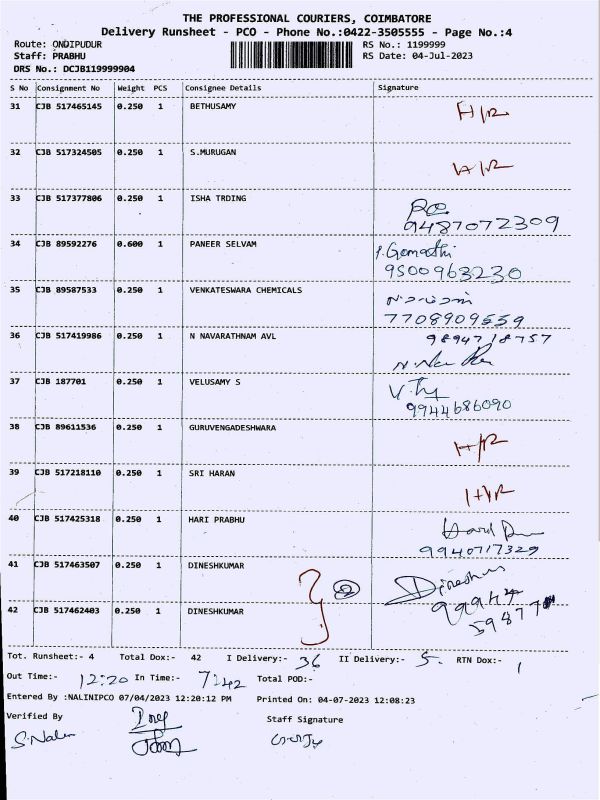 THE PROFESSIONAL COURIERS, COIMBATORE
Delivery Runsheet - PCO - Phone No.:0422-3505555 - Page No.:4
Route: ONDIPUDUR RS No.: 1199999
Staff: PRABHU RS Date: 04-Jul-2023
DRS No.: DCJB119999904
S No Consignment No Weight PCS Consignee Details Signature
31 CJB 517465145 0.250 1 BETHUSAMY H/R
32 CJB 517324505 0.250 1 S.MURUGAN H/R
33 CJB 517377806 0.250 1 ISHA TRDING
9487072309
34 CJB 89592276 0.600 1 PANEER SELVAM P.Gomathi
9500963230
35 CJB 89587533 0.250 1 VENKATESWARA CHEMICALS
7708909559
36 CJB 517419986 0.250 1 N NAVARATHNAM AVL 9894718757
37 CJB 187701 0.250 1 VELUSAMY S
9944686090
38 CJB 89611536 0.250 1 GURUVENGADESHWARA H/R
39 CJB 517218110 0.250 1 SRI HARAN H/R
40 CJB 517425318 0.250 1 HARI PRABHU
9940717329
41 CJB 517463507 0.250 1 DINESHKUMAR 2 Dineshkum
42 CJB 517462403 0.250 1 DINESHKUMAR
Tot. Runsheet:- 4 Total Dox:- 42 I Delivery:- 36 II Delivery:- 5. RTN Dox:- 1
Out Time:- 12:20 In Time:- 7:42 Total POD:-
Entered By :NALINIPCO 07/04/2023 12:20:12 PM Printed On: 04-07-2023 12:08:23
Verified By Staff Signature
S.Nalin